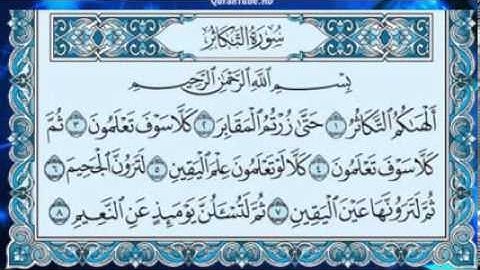 QuranTube.HD
سُورَةُ التَّكَاثُرِ
بِسْمِ اللَّهِ الرَّحْمَٰنِ الرَّحِيمِ
أَلْهَىٰكُمُ التَّكَاثُرُ ١ حَتَّىٰ زُرْتُمُ الْمَقَابِرَ ٢ كَلَّا سَوْفَ تَعْلَمُونَ ٣ ثُمَّ
كَلَّا سَوْفَ تَعْلَمُونَ ٤ كَلَّا لَوْ تَعْلَمُونَ عِلْمَ الْيَقِينِ ٥ لَتَرَوُنَّ الْجَحِيمَ ٦
ثُمَّ لَتَرَوُنَّهَا عَيْنَ الْيَقِينِ ٧ ثُمَّ لَتُسْـَٔلُنَّ يَوْمَئِذٍ عَنِ النَّعِيمِ ٨